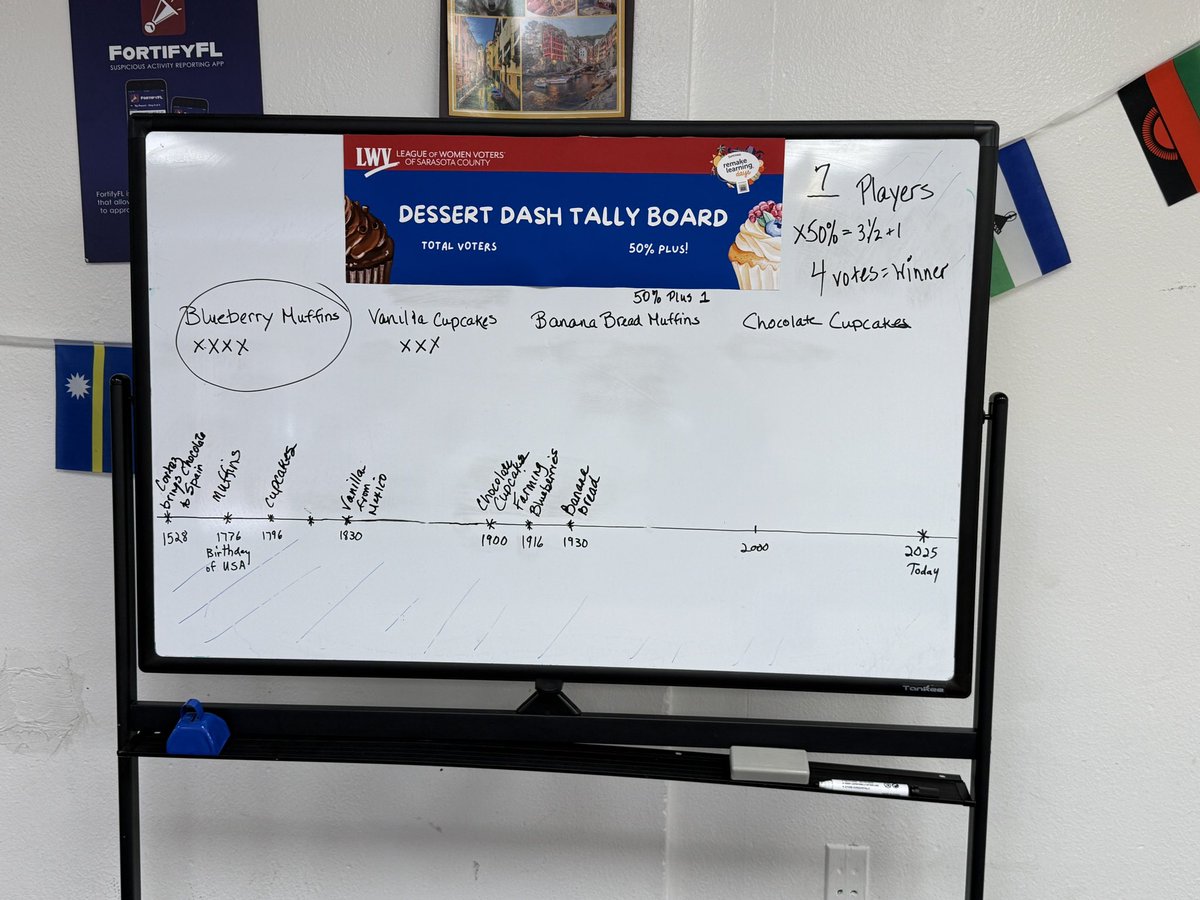 FORTIFYFL
SUSPICIOUS ACTIVITY REPORTING APP
FortifyFL is
that allow
to appro
LWV LEAGUE OF WOMEN VOTERS
OF SARASOTA COUNTY
remake
learning
days
DESSERT DASH TALLY BOARD
TOTAL VOTERS
50% PLUS!
7 Players
x50% = 3 1/2 + 1
4 votes = Winner
50% Plus 1
Blueberry Muffins
XXXX
Vanilla Cupcakes
XXX
Banana Bread Muffins
Chocolate Cupcakes
Cortez
brings Chocolate
to Spain
1528
Muffins
1776
Birthday
of USA
Cupcakes
1796
Vanilla
from
Mexico
1830
Chocolate
Cupcake
1900
Farming
Blueberries
1916
Banana
bread
1930
2000
2025
Today
Tankee